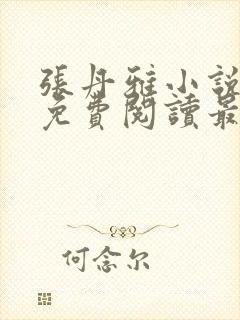 張丹雅小說
免費閱讀最
何念尔